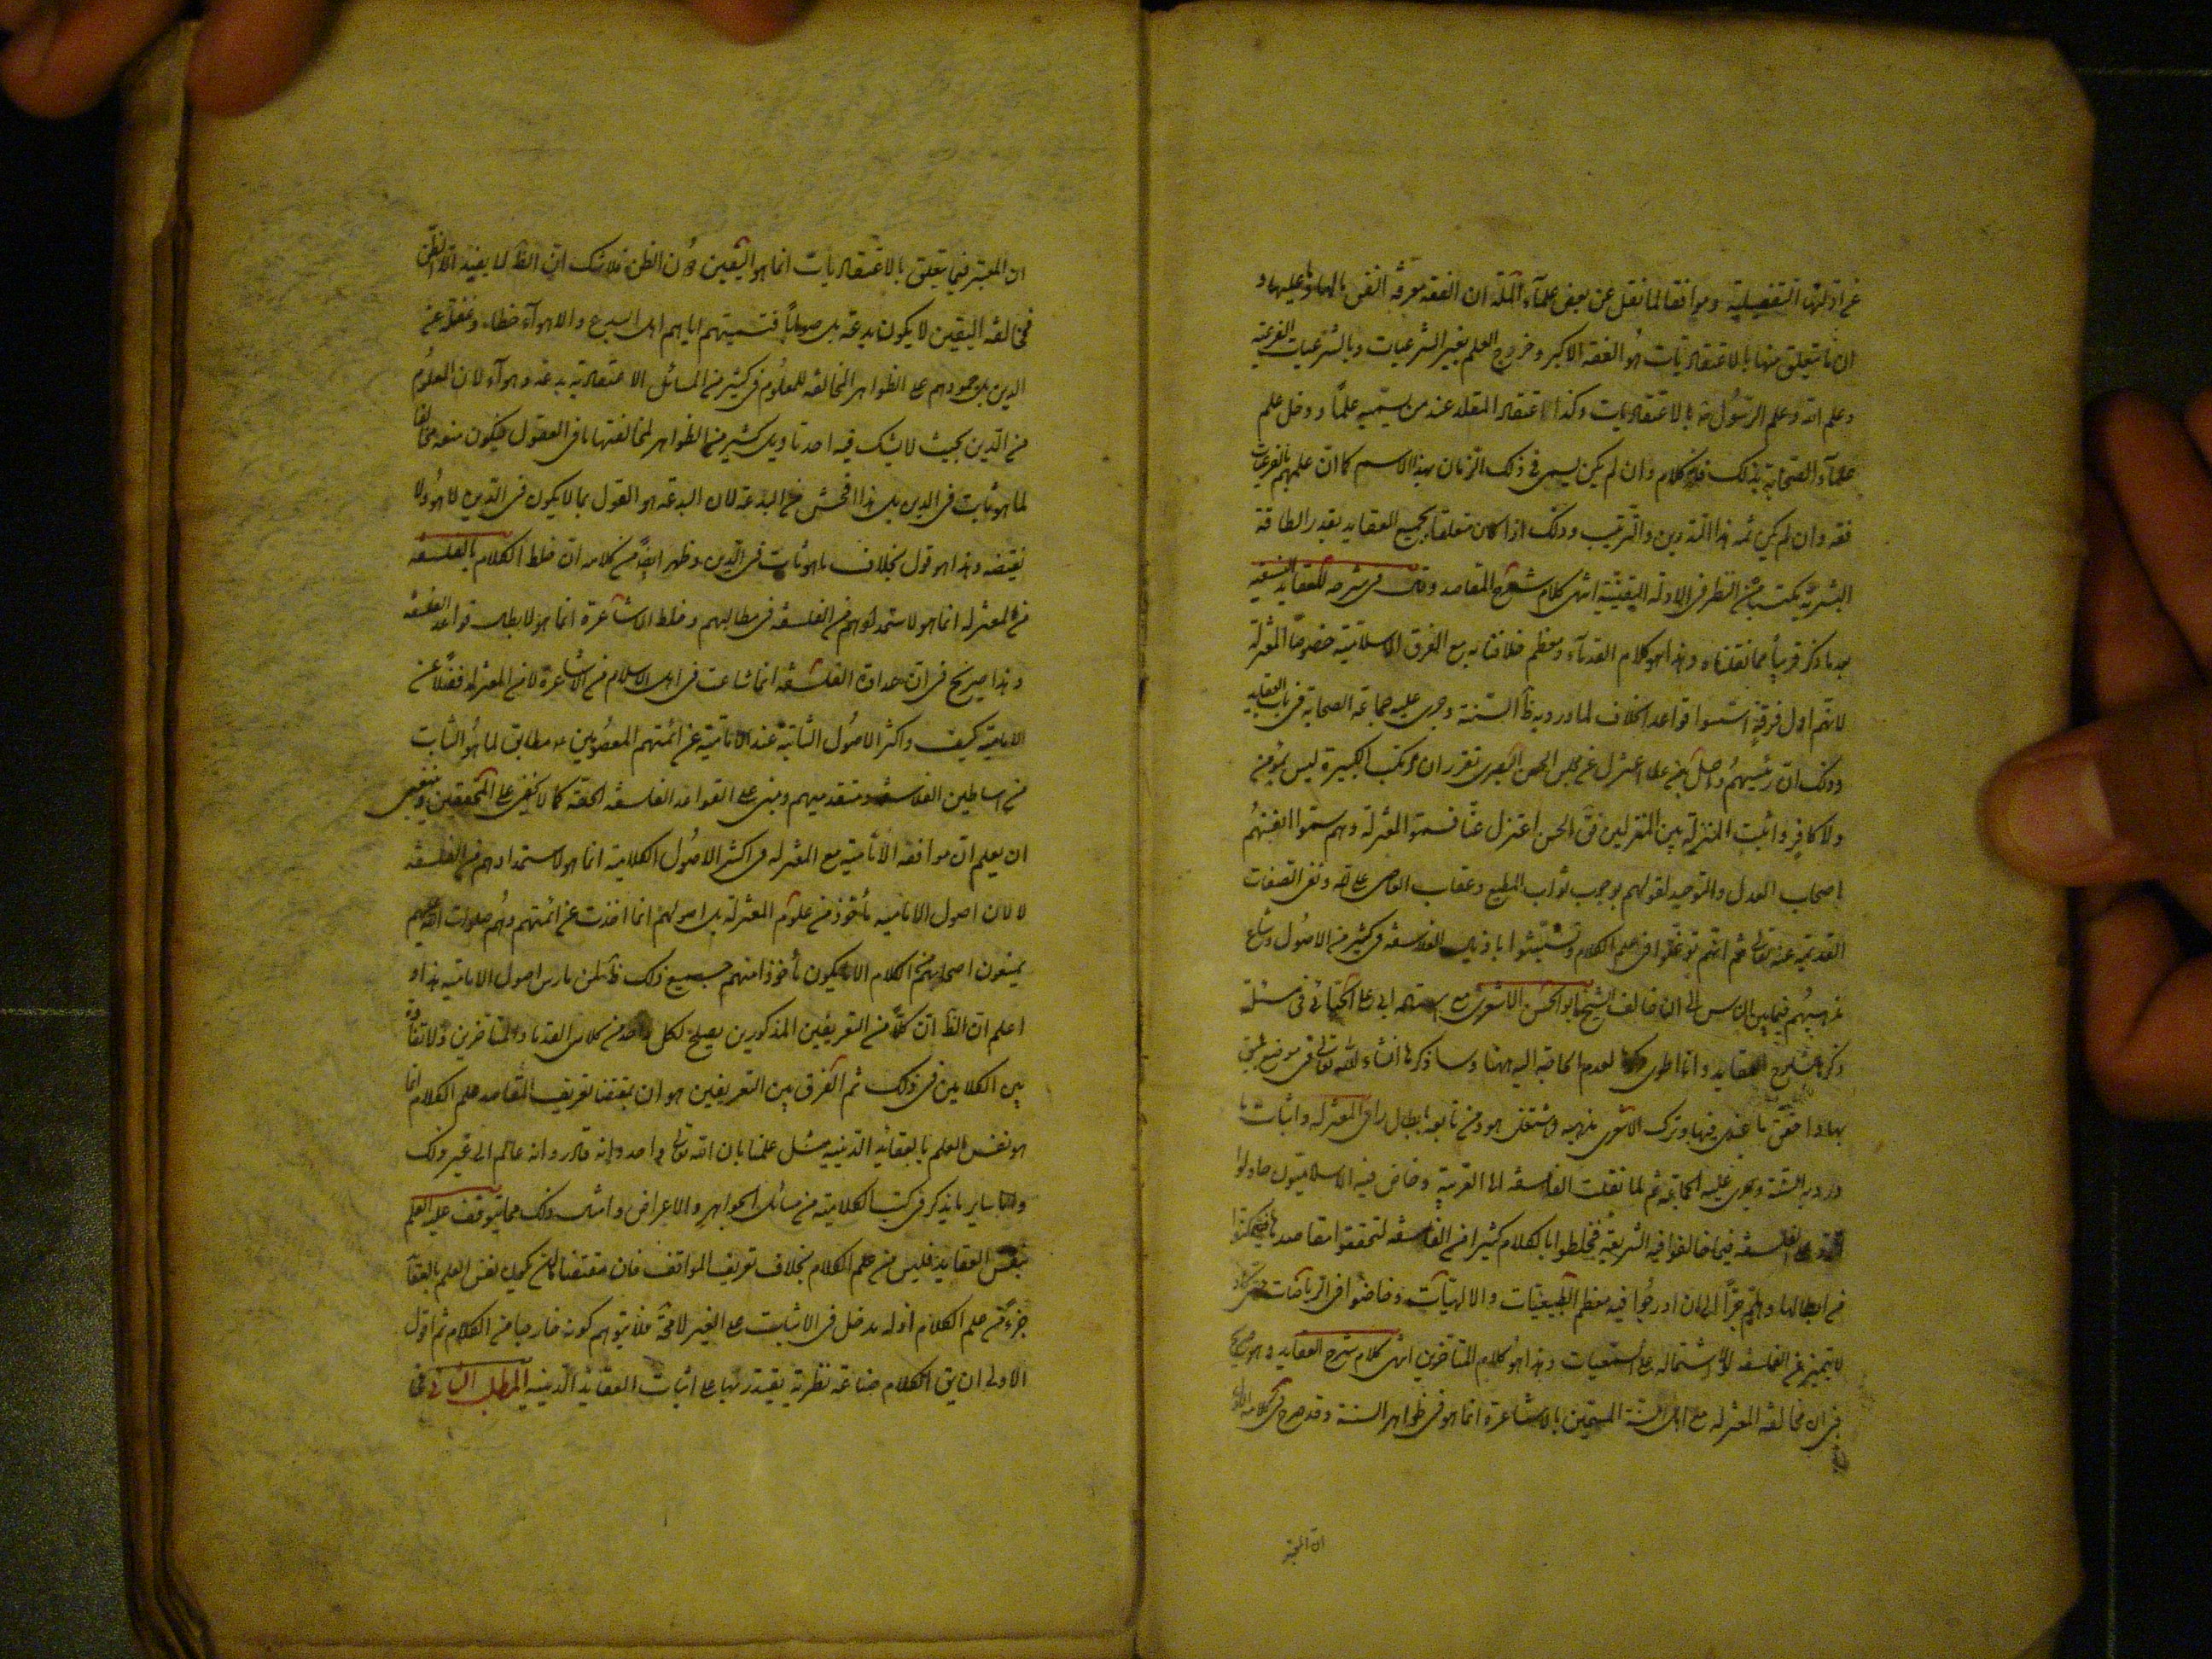 عن ادلتها التفصيلية وموافقا لما نقل عن بعض علماء الملة ان الفقه معرفة النفس مالها وما عليها و
ان ما يتعلق منها بالاعتقاديات هو الفقه الاكبر وخروج العلم بغير الشرعيات وبالشرعيات الفرعية
وعلم الله وعلم الرسول ص بالاعتقاديات وكذا اعتقاد المقلد عند من يسميه علماً ودخل علم
علماء الصحابة بذلك فانه كلام وان لم يكن يسمى في ذلك الزمان بهذا الاسم كما ان علمهم بالفرعيات
فقه وان لم يكن ثمه هذا التدوين والترتيب وذلك اذا كان متعلقا بجميع العقايد بقدر الطاقة
البشرية مكتسبا من النظر في الادلة اليقينية انتهى كلام شرح المقاصد وقال في شرحه للعقايد النسفية
بعد ما ذكر قريباً مما نقلناه وهذا هو كلام القدماء ومعظم خلافياته مع الفرق الاسلامية خصوصاً المعتزلة
لانهم اول فرقة اسسوا قواعد الخلاف لما ورد به ظ السنة وجرى عليه جماعة الصحابة في باب العقايد
وذلك ان رئيسهم واصل بن عطا اعتزل عن مجلس الحسن البصرى تقرر ان مرتكب الكبيرة ليس بمؤمن
ولا كافر واثبت المنزلة بين المنزلين فق الحسن اعتزل عنا فسموا المعتزلة وهم سموا انفسهم
اصحاب العدل والتوحيد لقولهم بوجوب ثواب المطيع وعقاب العاصى على الله ونفى الصفات
القديمة عنه تعالى ثم انهم توغلوا في علم الكلام وتشبثوا باذيال الفلاسفة في كثير من الاصول وشاع
مذهبهم فيما بين الناس الى ان خالف الشيخ ابو الحسن الاشعرى مع استاده ابى على الجبائى في مسئلة
ذكرها شارح العقايد وانا اطوى ذكرها لعدم الحاجة اليه ههنا وساذكرها انشاء الله تعالى في موضع يليق
بها واحقق ما عندى فيها وترك الاشعرى مذهبه واشتغل هو ومن تابعه بابطال راى المعتزلة واثبات ما
ورد به السنة وجرى عليه الجماعة ثم لما نقلت الفلسفة الى العربية وخاض فيه الاسلاميون حاولوا
الرد على الفلاسفة فيما خالفوا فيه الشريعة فخلطوا بالكلام كثيرا من الفلسفة لتحققوا مقاصدها فيتمكنوا
من ابطالها وهلم جرّاً الى ان ادرجوا فيه معظم الطبيعيات والالهيات وخاضوا في الرياضيات حتى كاد
لا يتميز عن الفلسفة لولا اشتماله على السمعيات وهذا هو كلام المتاخرين انتهى كلام شرح العقايد وهو صريح
في ان مخالفة المعتزلة مع اهل السنة المسمين بالاشاعرة انما هو في ظواهر السنة وقد صرح في كلامه
ان المعتبر
ان المعتبر فيما يتعلق بالاعتقاديات انما هو اليقين دون الظن فلا شك ان الظ لا يفيد الا الظن
فمخالفة اليقين لا يكون بدعة بل صواباً فتسميتهم اياهم اهل البدع والاهواء خطاء وغفلة عن
الدين بل جمودهم على الظواهر المخالفة للمعلوم في كثير من المسائل الاعتقادية بدعة وهواء لان المعلوم
من الدين بحيث لا يشك فيه احد تاويل كثير من الظواهر لمخالفتها في العقول فيكون منعه مخالفا
لما هو ثابت في الدين بل هذا افحش من البدعة لان البدعة هو القول بما لا يكون في الدين لا هو ولا
نقيضه وهذا هو قول بخلاف ما هو ثابت في الدين وظهر ايضاً من كلامه ان خلط الكلام بالفلسفة
من المعتزلة انما هو لاستمدادهم من الفلسفة في مطالبهم وخلط الاشاعرة انما هو لابطال قواعد الفلسفة
وهذا صريح في ان عداوة الفلسفة انما شاعت في اهل الاسلام من الاشاعرة لا من المعتزلة فضلاً عن
الامامية كيف واكثر الاصول الثابتة عند الامامية عن ائمتهم المعصومين ع مطابق لما هو الثابت
من اساطين الفلاسفة ومتقدميهم ومبنى على القواعد الفلسفة الحقة كما لا يخفى على المحققين وينبغى
ان يعلم ان موافقة الامامية مع المعتزلة في اكثر الاصول الكلامية انما هو لاستمدادهم من الفلسفة
لا لان اصول الامامية مأخوذ من علوم المعتزلة بل اصولهم انما اخذت عن ائمتهم وهم صلوات الله عليهم
يمنعون اصحابهم من الكلام الا ما يكون مأخوذا منهم جميع ذلك ظ لمن مارس اصول الامامية هذا و
اعلم ان الظ ان كلاً من التعريفين المذكورين يصلح لكل واحد من كلامى القدماء والمتاخرين ولا تفاوت
بين الكلامين في ذلك ثم الفرق بين التعريفين هو ان بمقتضا تعريف المقاصد علم الكلام انما
هو نفس العلم بالعقايد الدينية مثل علمنا بان الله تعالى واحد وانه قادر وانه عالم الى غير ذلك
واما ساير ما يذكر في كتب الكلامية من مسائل الجواهر والاعراض وامثال ذلك مما يتوقف عليه العلم
بنفس العقايد فليس من علم الكلام بخلاف تعريف المواقف فان مقتضاه ان يكون نفس العلم بالعقايد
جزءً من علم الكلام اذ له مدخل في الاثبات على الغير لا محة فلا يتوهم كونه خارجا من الكلام ثم اقول
الاولى ان يق الكلام صناعة نظرية يقتدر بها على اثبات العقايد الدينية المطلب الثانى في